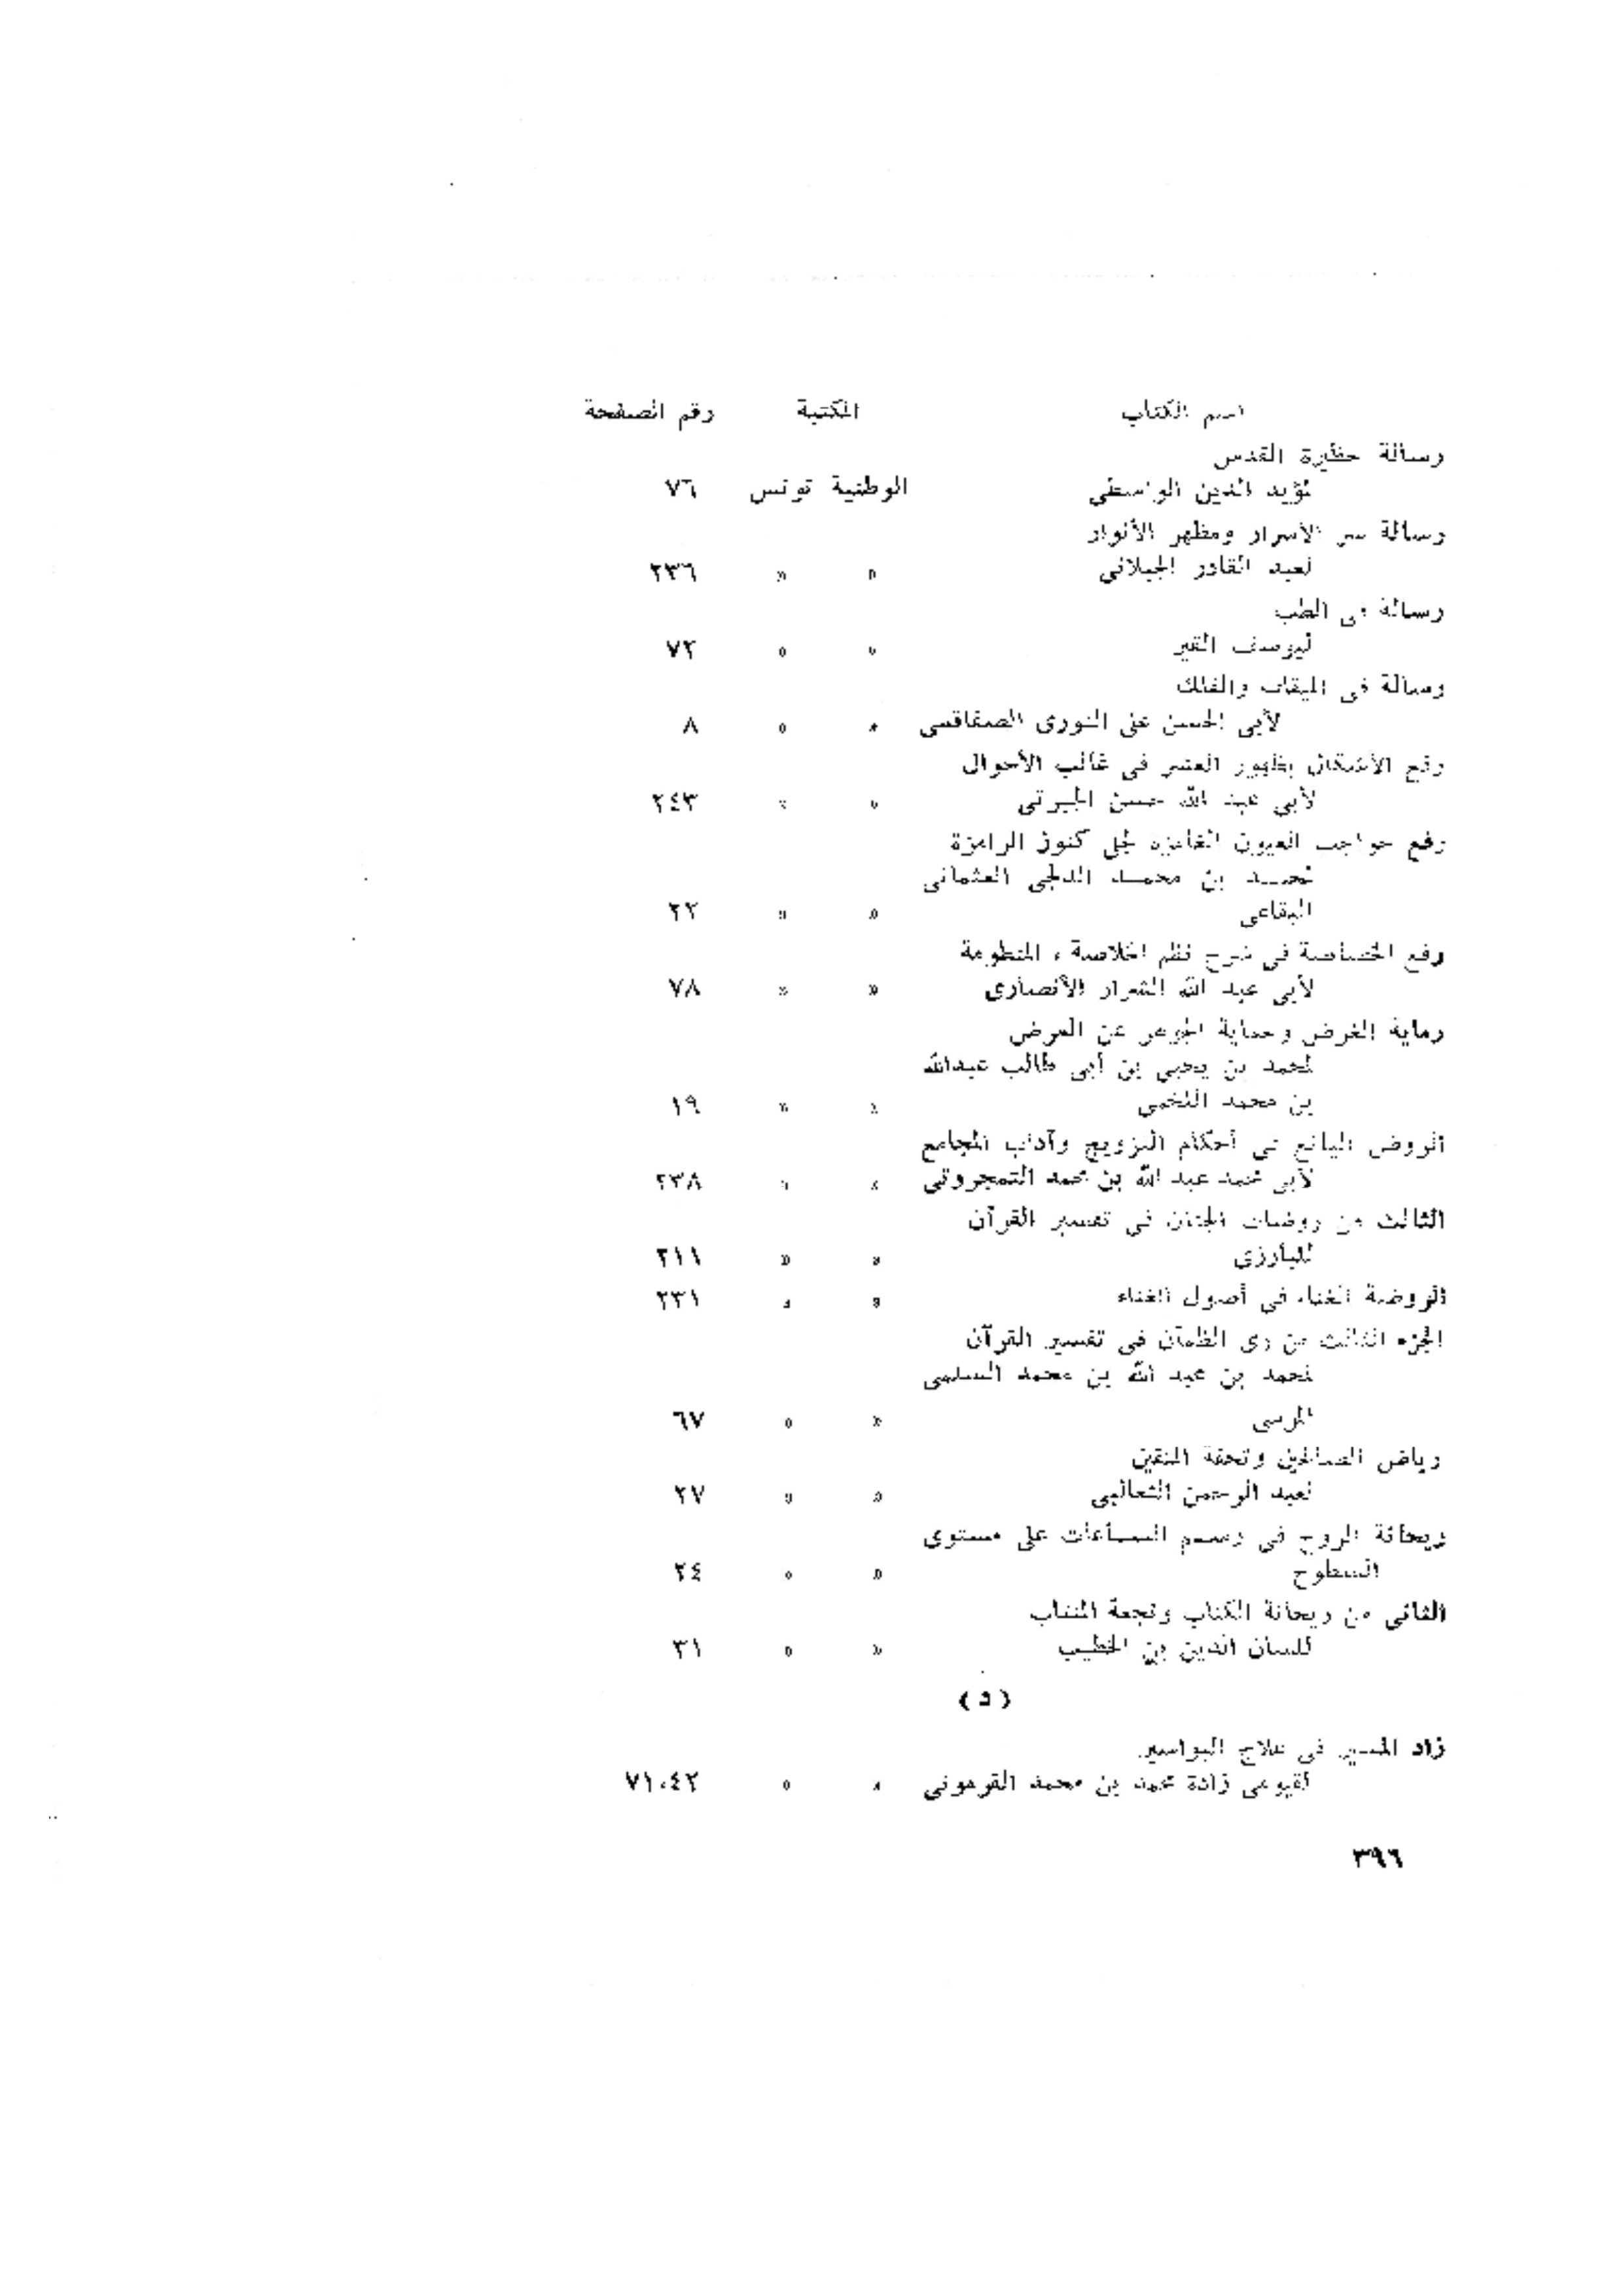 اسم الكتاب المكتبة رقم الصفحة
رسالة حظيرة القدس
لمؤيد الدين الواسطى الوطنية تونس ٧٦
رسالة سر الأسرار ومظهر الأنوار
لعبد القادر الجيلانى » » ٢٣٦
رسالة فى الطب
ليوسف » » ٧٢
رسالة فى الميقات والفلك
لأبى الحسن على النورى الصفاقسى » » ٨
رفع الأشكال بظهور العشر فى غالب الأحوال
لأبى عبد الله حسن الجبرتى » » ٢٤٣
رفع حواجب العيون الغامزة لحل كنوز الرامزة
لمحمــد بن محمــد الدلجى العثمانى
البقاعى » » ٢٢
رفع الخصاصة فى شرح نظم الخلاصة ، المنظومة
لأبى عبد الله الأنصارى » » ٧٨
رماية الغرض وحماية الجوهر عن العرض
لمحمد بن يحيى بن أبى طالب عبدالله
بن محمد اللخمى » » ١٩
الروض اليانع فى أحكام التزويج وآداب المجامع
لأبى محمد عبد الله بن محمد التمجروتى » » ٢٣٨
الثالث من روضات الجنان فى تفسير القرآن
للبارزى » » ٢١١
الروضة الغناء فى أصول الغناء » » ٢٣١
الجزء الثالث من رى الظمآن فى تفسير القرآن
لمحمد بن عبد الله بن محمد السلمى
المرسى » » ٦٧
رياض الصالحين وتحفة المتقين
لعبد الرحمن الثعالبى » » ٢٧
ريحانة الروح فى رسم الساعات على مستوى
السطوح » » ٢٤
الثانى من ريحانة الكتاب ونجعة المنتاب
للسان الدين بن الخطيب » » ٣١
زاد المسير فى علاج البواسير
لقيومى زادة محمد بن محمد القوصونى » » ٧١،٤٢
٣٩٦